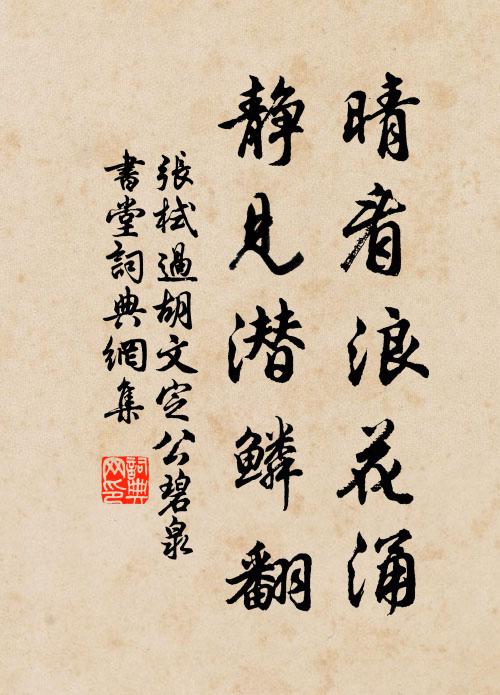 晴看浪花涌
静見潜鱗翻
張栻過胡文定公碧泉
書堂詞典網集
詞典网印